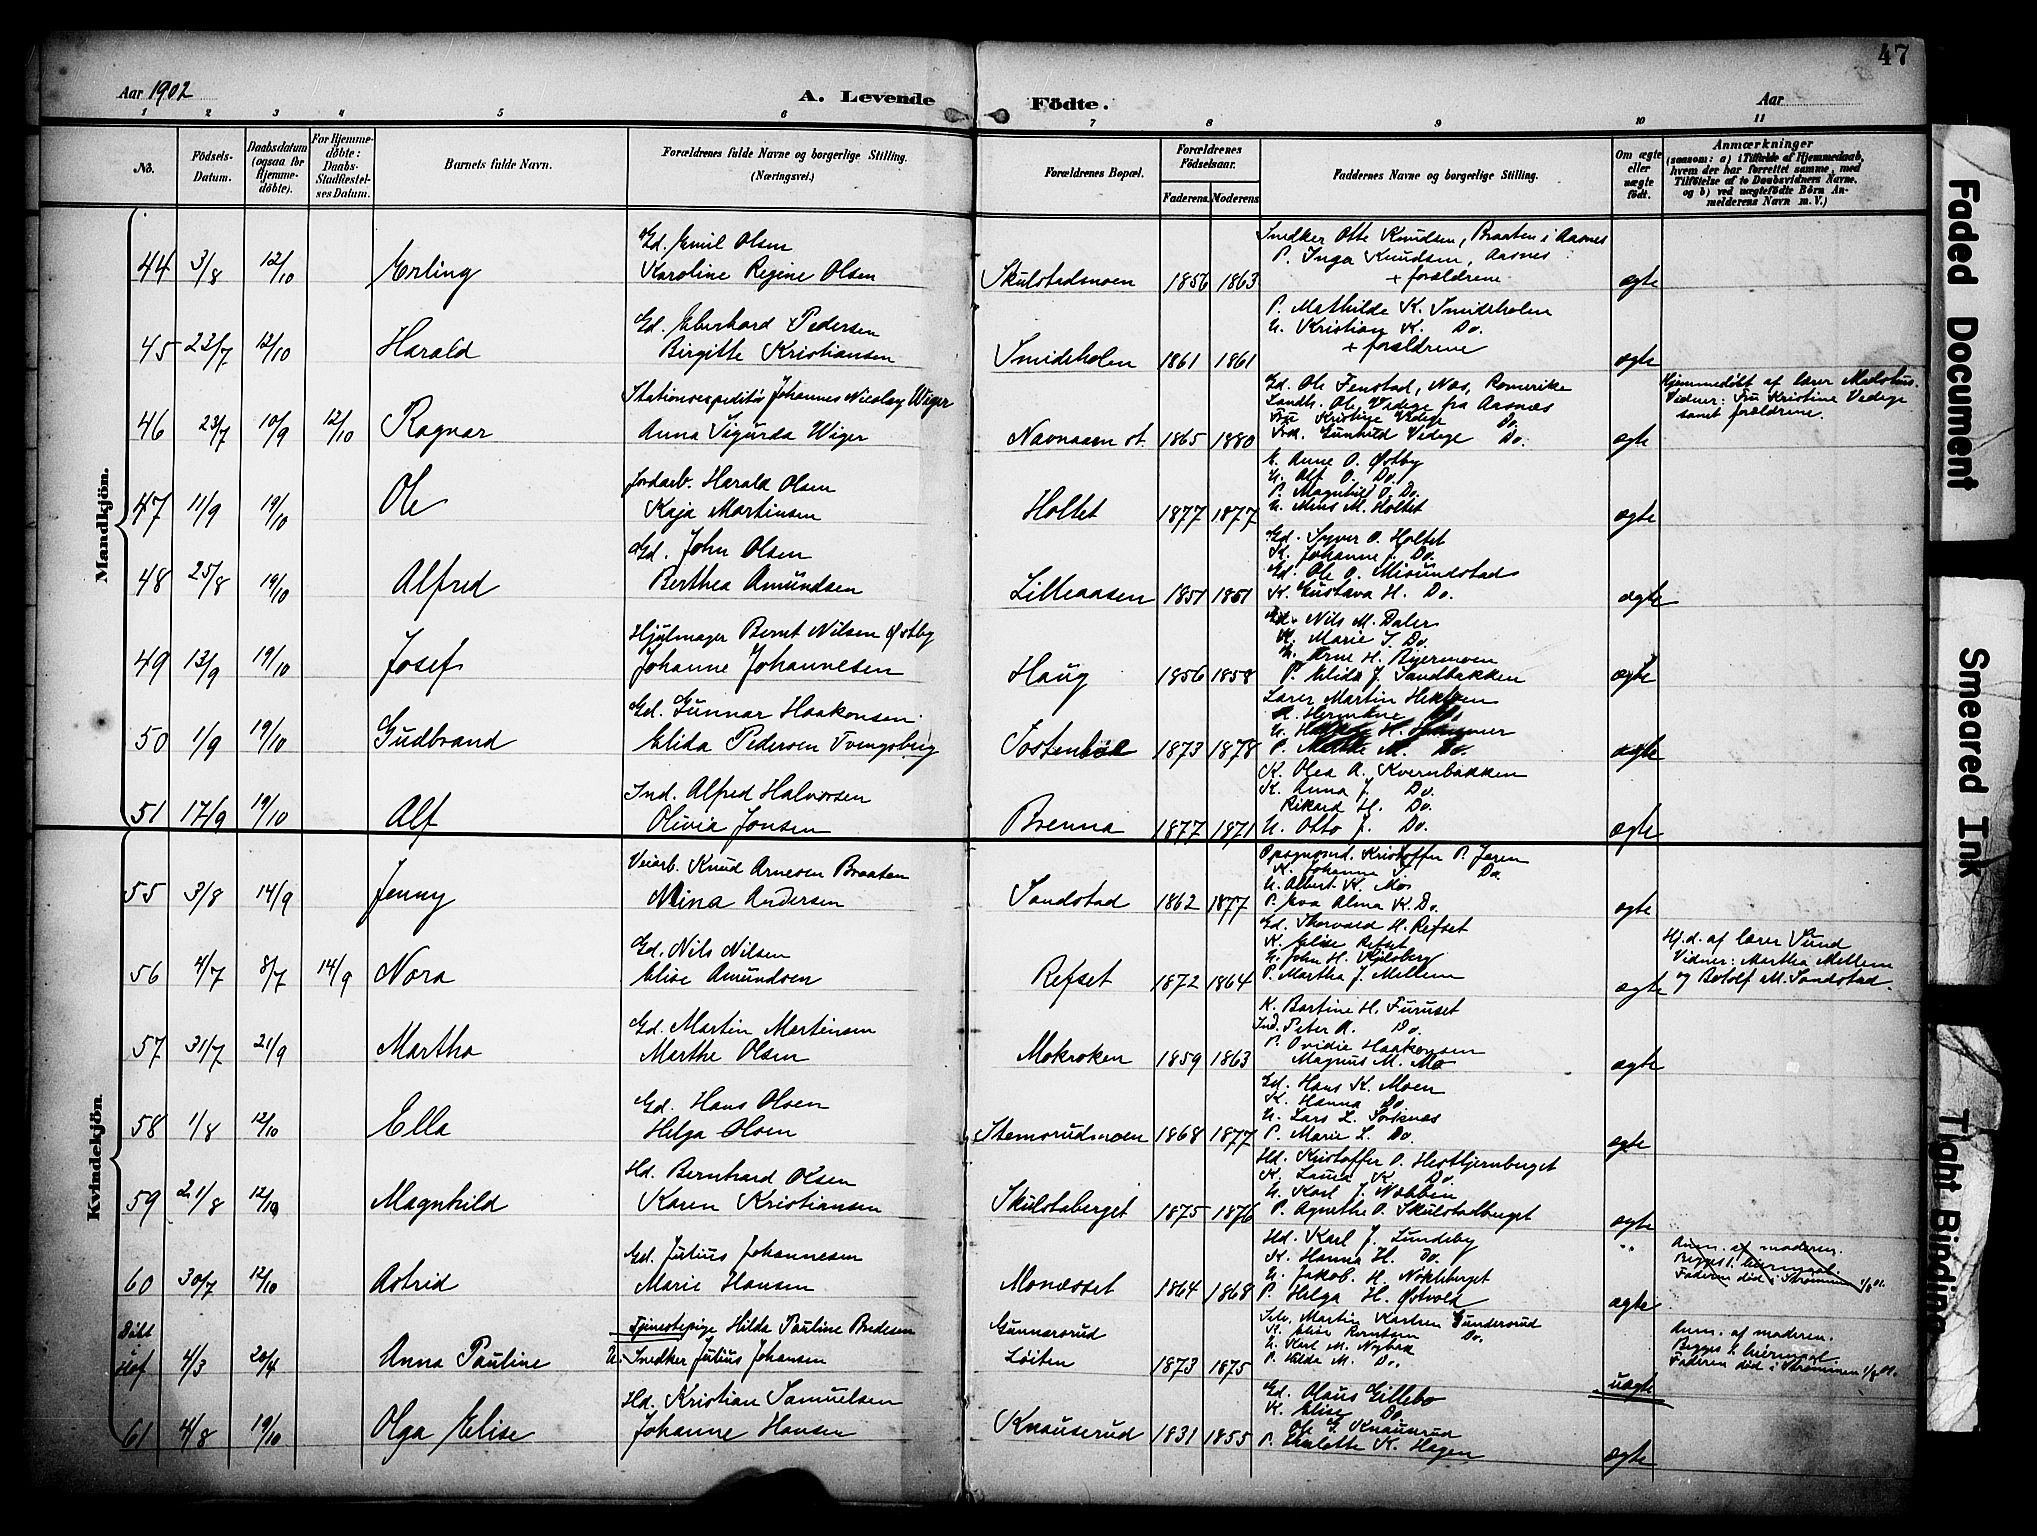 47
Aar 1902
A. Levende Födte.
Aar
1 2 3 4 5 6 7 8 9 10 11
No.
Födsels-Datum.
Daabsdatum (ogsaa for Hjemme-døbte).
For Hjemme-døbte: Daabs-Stadfæstelses Datum.
Barnets fulde Navn.
Forældrenes fulde Navne og borgerlige Stilling. (Næringsvei.)
Forældrenes Bopæl.
Forældrenes Födselsaar.
Faderens. Moderens.
Faddernes Navne og borgerlige Stilling.
Om ægte eller uægte födt.
Anmærkninger
(saasom: a) i Tilfælde af Hjemmedaab, hvem der har forrettet samme, med Tilføielse af to Daabsvidners Navne, og b) ved uægtefödte Börn Anmelderens Navn m. V.)
Mandkjön.
44 3/8 12/10 Erling
Gd. Emil Olsen
Karoline Regine Olsen
Skulstadmoen 1856 1863
Snedker Otte Knudsen, Braaten i Aasnes
P. Inga Knudsen, Aasnes
+ forældrene
ægte
45 23/7 12/10 Harald
Gd. Eberhard Pedersen
Birgitte Kristiansen
Smidsholen 1861 1861
P. Mathilde K. Smidsholen
U. Kristian K. Do.
+ forældrene
ægte
46 23/7 10/9 12/10 Ragnar
Stationsexpeditör Johannes Nicolay Wiger
Anna Sigurda Wiger
Navnaaen st. 1865 1880
Gd. Ole Fenstad, Næs, Romerike
Landh. Ole Vedege fra Aasnæs
Fru Kristine Vedege Do.
Frk. Gunhild Vedege Do.
ægte
Hjemmedøbt af lærer Melshus.
Vidner: Fru Kristine Vedege
samt forældrene.
47 11/9 19/10 Ole
Jordarb. Harald Olsen
Kaja Martinsen
Holtet 1877 1877
E. Anne O. Østby
U. Alf O. Do.
P. Magnhild O. Do.
U. Mins M. Holtet
ægte
48 25/8 19/10 Alfred
Gd. John Olsen
Berthea Amundsen
Lilleaasen 1857 1861
Gd. Syver O. Holtet
K. Johanne J. Do.
Gd. Ole O. Misundstad
K. Gustava H. Do.
ægte
49 13/9 19/10 Josef
Hjulmager Bernt Nilsen Østby
Johanne Johannesen
Haug 1856 1858
Gd. Nils M. Daler
K. Marie S. Do.
U. Arne H. Bjermoen
P. Elida J. Sandbakken
ægte
50 1/9 19/10 Gudbrand
Gd. Gunnar Haakonsen
Elida Pedersen Tvengsberg
1873 1878
Lærer Martin
K. Hermine Do
U. H. Hammer
P. M. Do.
ægte
51 17/9 19/10 Alf
Ind. Alfred Halvorsen
Olivia Jonsen
Brenna 1877 1871
K. Olea A. Kvernbakken
K. Anna J. Do.
Rikard H. Do.
U. Otto J. Do.
ægte
Kvindekjön.
55 3/8 14/9 Jenny
Veiarb. Knud Arnesen Braaten
Mina Andersen
Sandstad 1862 1877
Opsynsmd. Kristoffer P. Jaren
K. Johanne S. Do
U. Albert K. Mos
P. Eva Alma K. Do.
ægte
56 4/7 8/7 14/9 Nora
Gd. Nils Nilsen
Elise Amundsen
Refset 1872 1864
Gd. Thorvald H. Refset
K. Elise Refset
U. John H. Kjilsberg
P. Martha J. Mellem
ægte
Hj.d. af lærer Sund
Vidner: Martha Mellem
og Botolf M. Sandstad.
57 31/7 21/9 Martha
Gd. Martin Martinsen
Marthe Olsen
Mokroken 1859 1863
K. Bartine H. Furuset
Ind. Peter A. Do.
P. Ovidie Haakonsen
Magnus M. Mo
ægte
58 1/8 12/10 Ella
Gd. Hans Olsen
Helga Olsen
Stemsrudmoen 1868 1877
Gd. Hans K. Moen
K. Hanna Do
U. Lars L. Sorknæs
P. Marie L. Do.
ægte
59 21/8 12/10 Magnhild
Hd. Bernhard Olsen
Karen Kristiansen
Skulstaberget 1875 1876
Hd. Kristoffer O. Hestbjernberget
K. Laura K. Do.
U. Karl J. Nabben
P. Agnethe O. Skulstadberget
ægte
60 30/7 12/10 Astrid
Gd. Julius Johannesen
Marie Hansen
Monæsset 1864 1868
Hd. Karl J. Lundeby
K. Hanna H. Do.
U. Jakob. H. Nokleberget
P. Helga H. Østvold
ægte
Anm. af moderen.
Begges 1. leiermaal.
Faderen död i Strømmen 1/8 01.
Döbt i Hof 4/3 20/4 Anna Pauline
Tjenestepige Hilda Pauline Bredesen
U. Snedker Julius Johansen
Gunnarsrud
Löiten 1873 1875
Selv. Martin Karlsen Gundersrud
K. Elise Berntsen Do.
U. Karl M. Nybek
P. Hilda M. Do.
uægte
Anm. af moderen.
Begges 1. leiermaal.
Faderen död i Strømmen 1/8 01.
61 4/8 19/10 Olga Elise
Hd. Kristian Samuelsen
Johanne Hansen
Knauserud 1831 1855
Gd. Olaus Gillebo
K. Elise Do
Ole G. Knauserud
P. Charlotte K. Hagen
ægte
Faded Document
Smeared Ink
Tight Binding